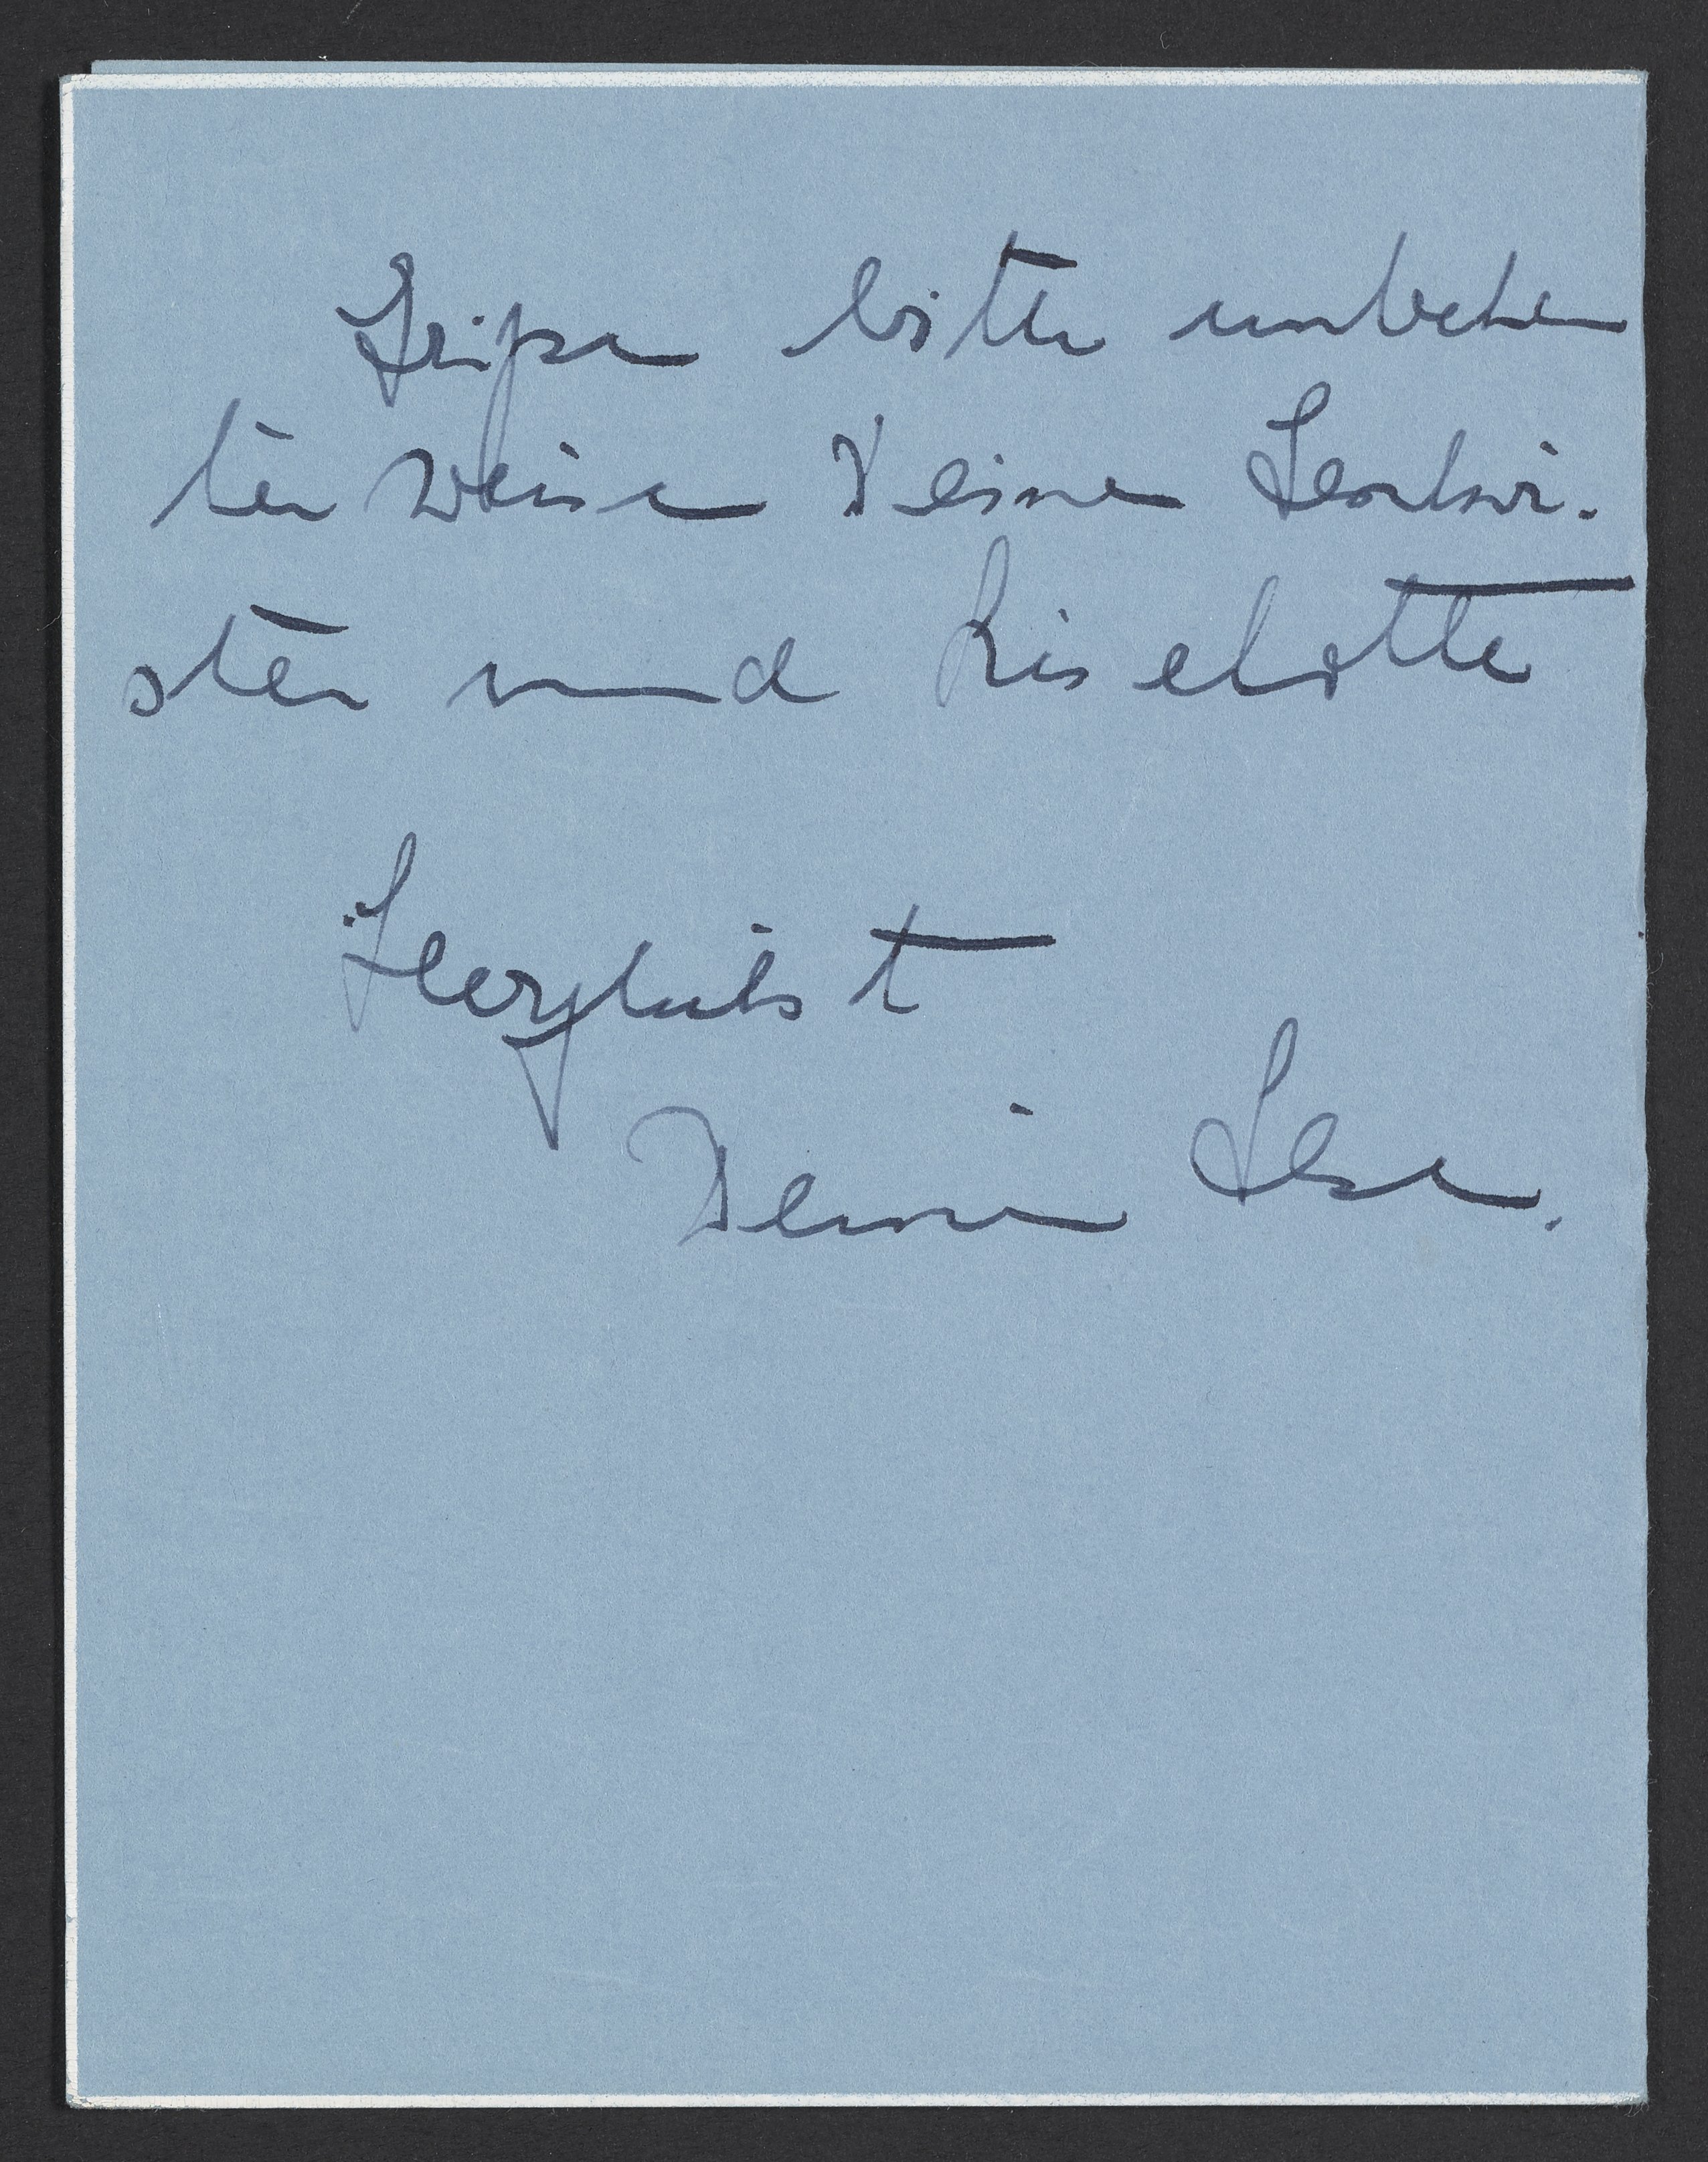 Grüsse bitte unbekann
ter weise Deine Geschwi-
ster und Liselotte
Herzlichst
Deine